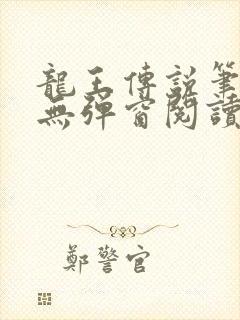 龍王傳說筆
無彈窗閱讀
鄭警官